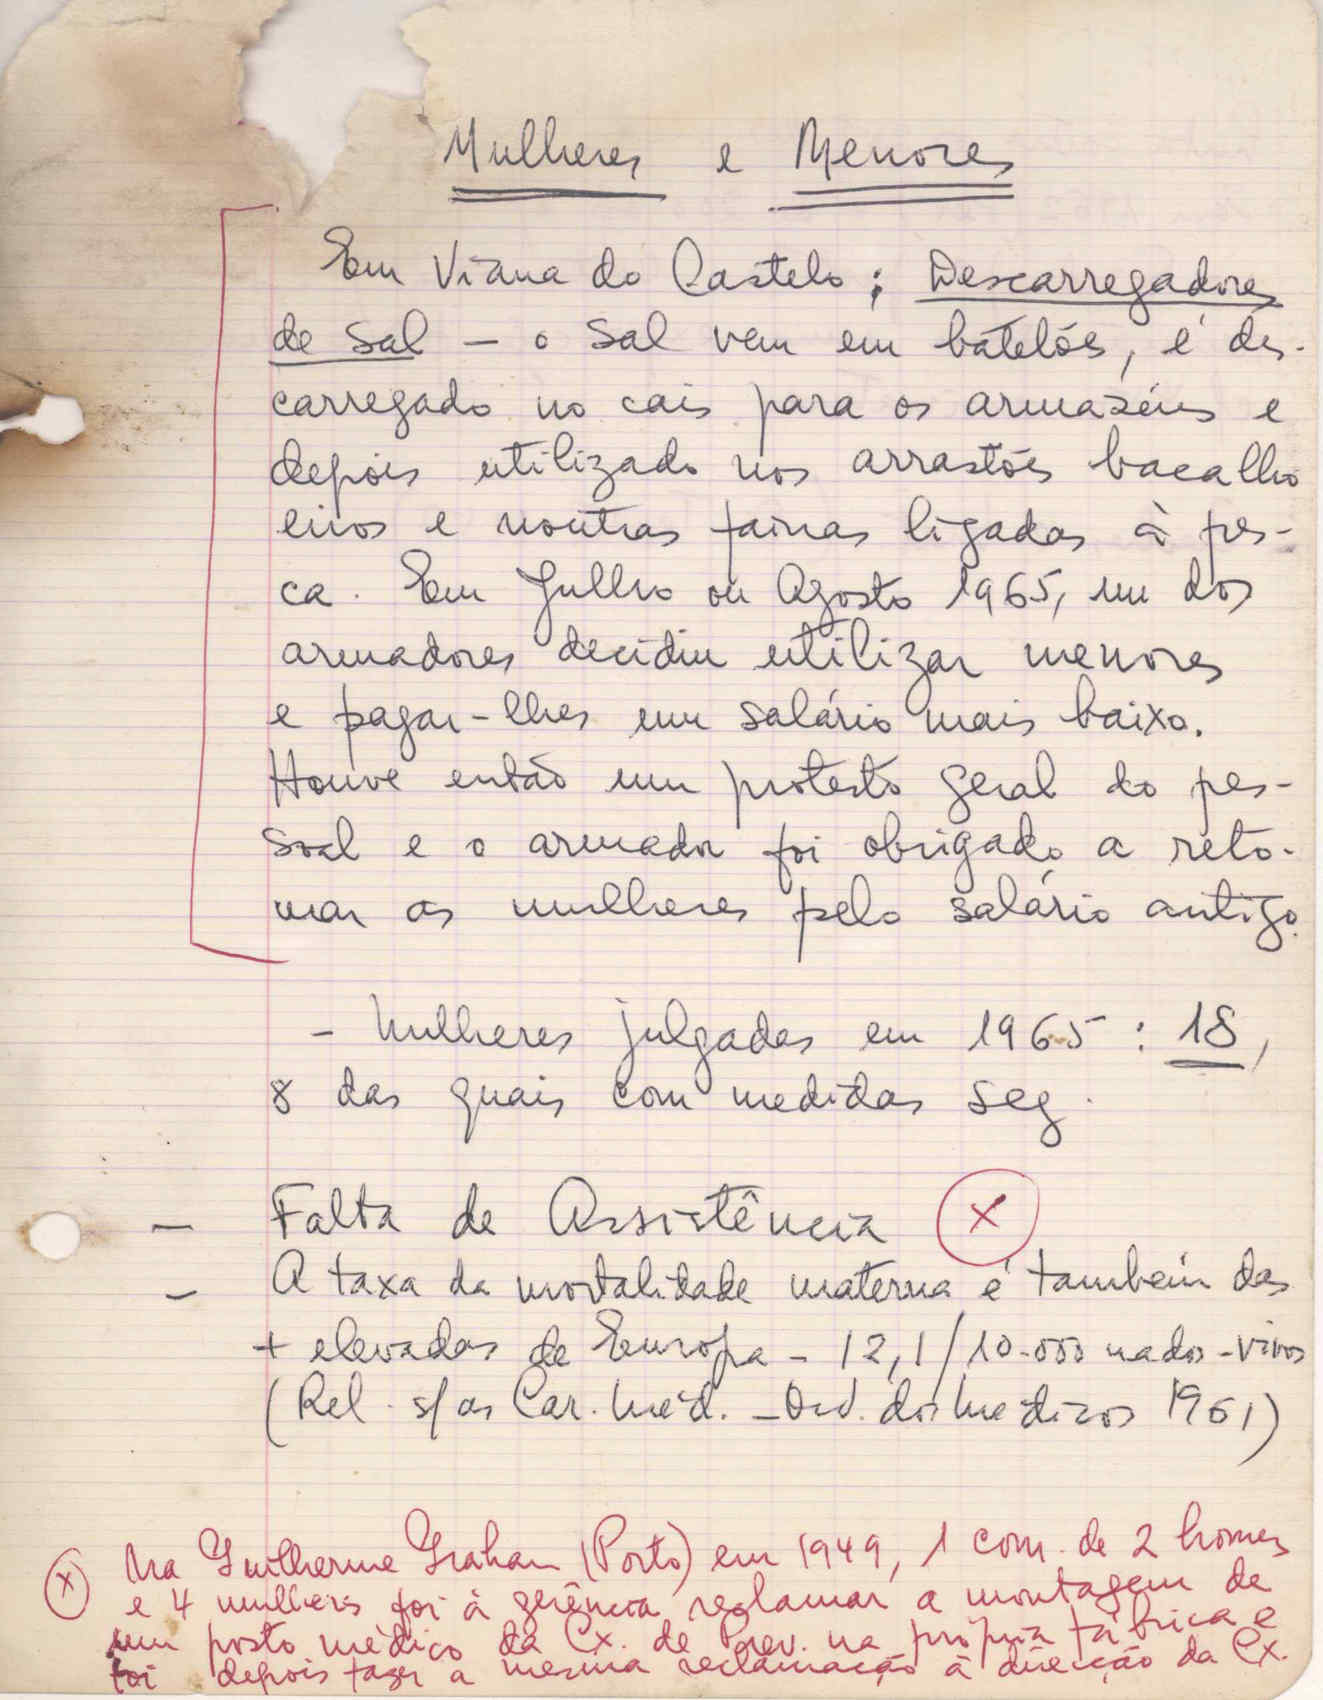 Mulheres e Menores
Em Viana do Castelo; Descarregadores
de Sal — o Sal vem em batelões, é des-
carregado no cais para os armazéns e
depois utilizado nos arrastões bacalho
eiros e noutras fainas ligadas à pes-
ca. Em Julho ou Agosto 1965, um dos
armadores decidiu utilizar menores
e pagar-lhes um salário mais baixo.
Houve então um protesto geral do pes-
soal e o armador foi obrigado a reto-
mar as mulheres pelo salário antigo.
- Mulheres julgadas em 1965: 18,
8 das quais com medidas seg.
— Falta de Assistência (x)
— A taxa da mortalidade materna é também das
+ elevadas de Europa - 12,1/10.000 nados-vivos
(Rel. s/ as Car. Méd. - Ord. dos Médicos 1961)
(x) Na Guilherme Graham (Porto) em 1949, 1 com. de 2 homes
e 4 mulheres foi à gerência reclamar a montagem de
um posto médico da Cx. de Prev. na própria fábrica e
foi depois fazer a mesma reclamação à direcção da Cx.